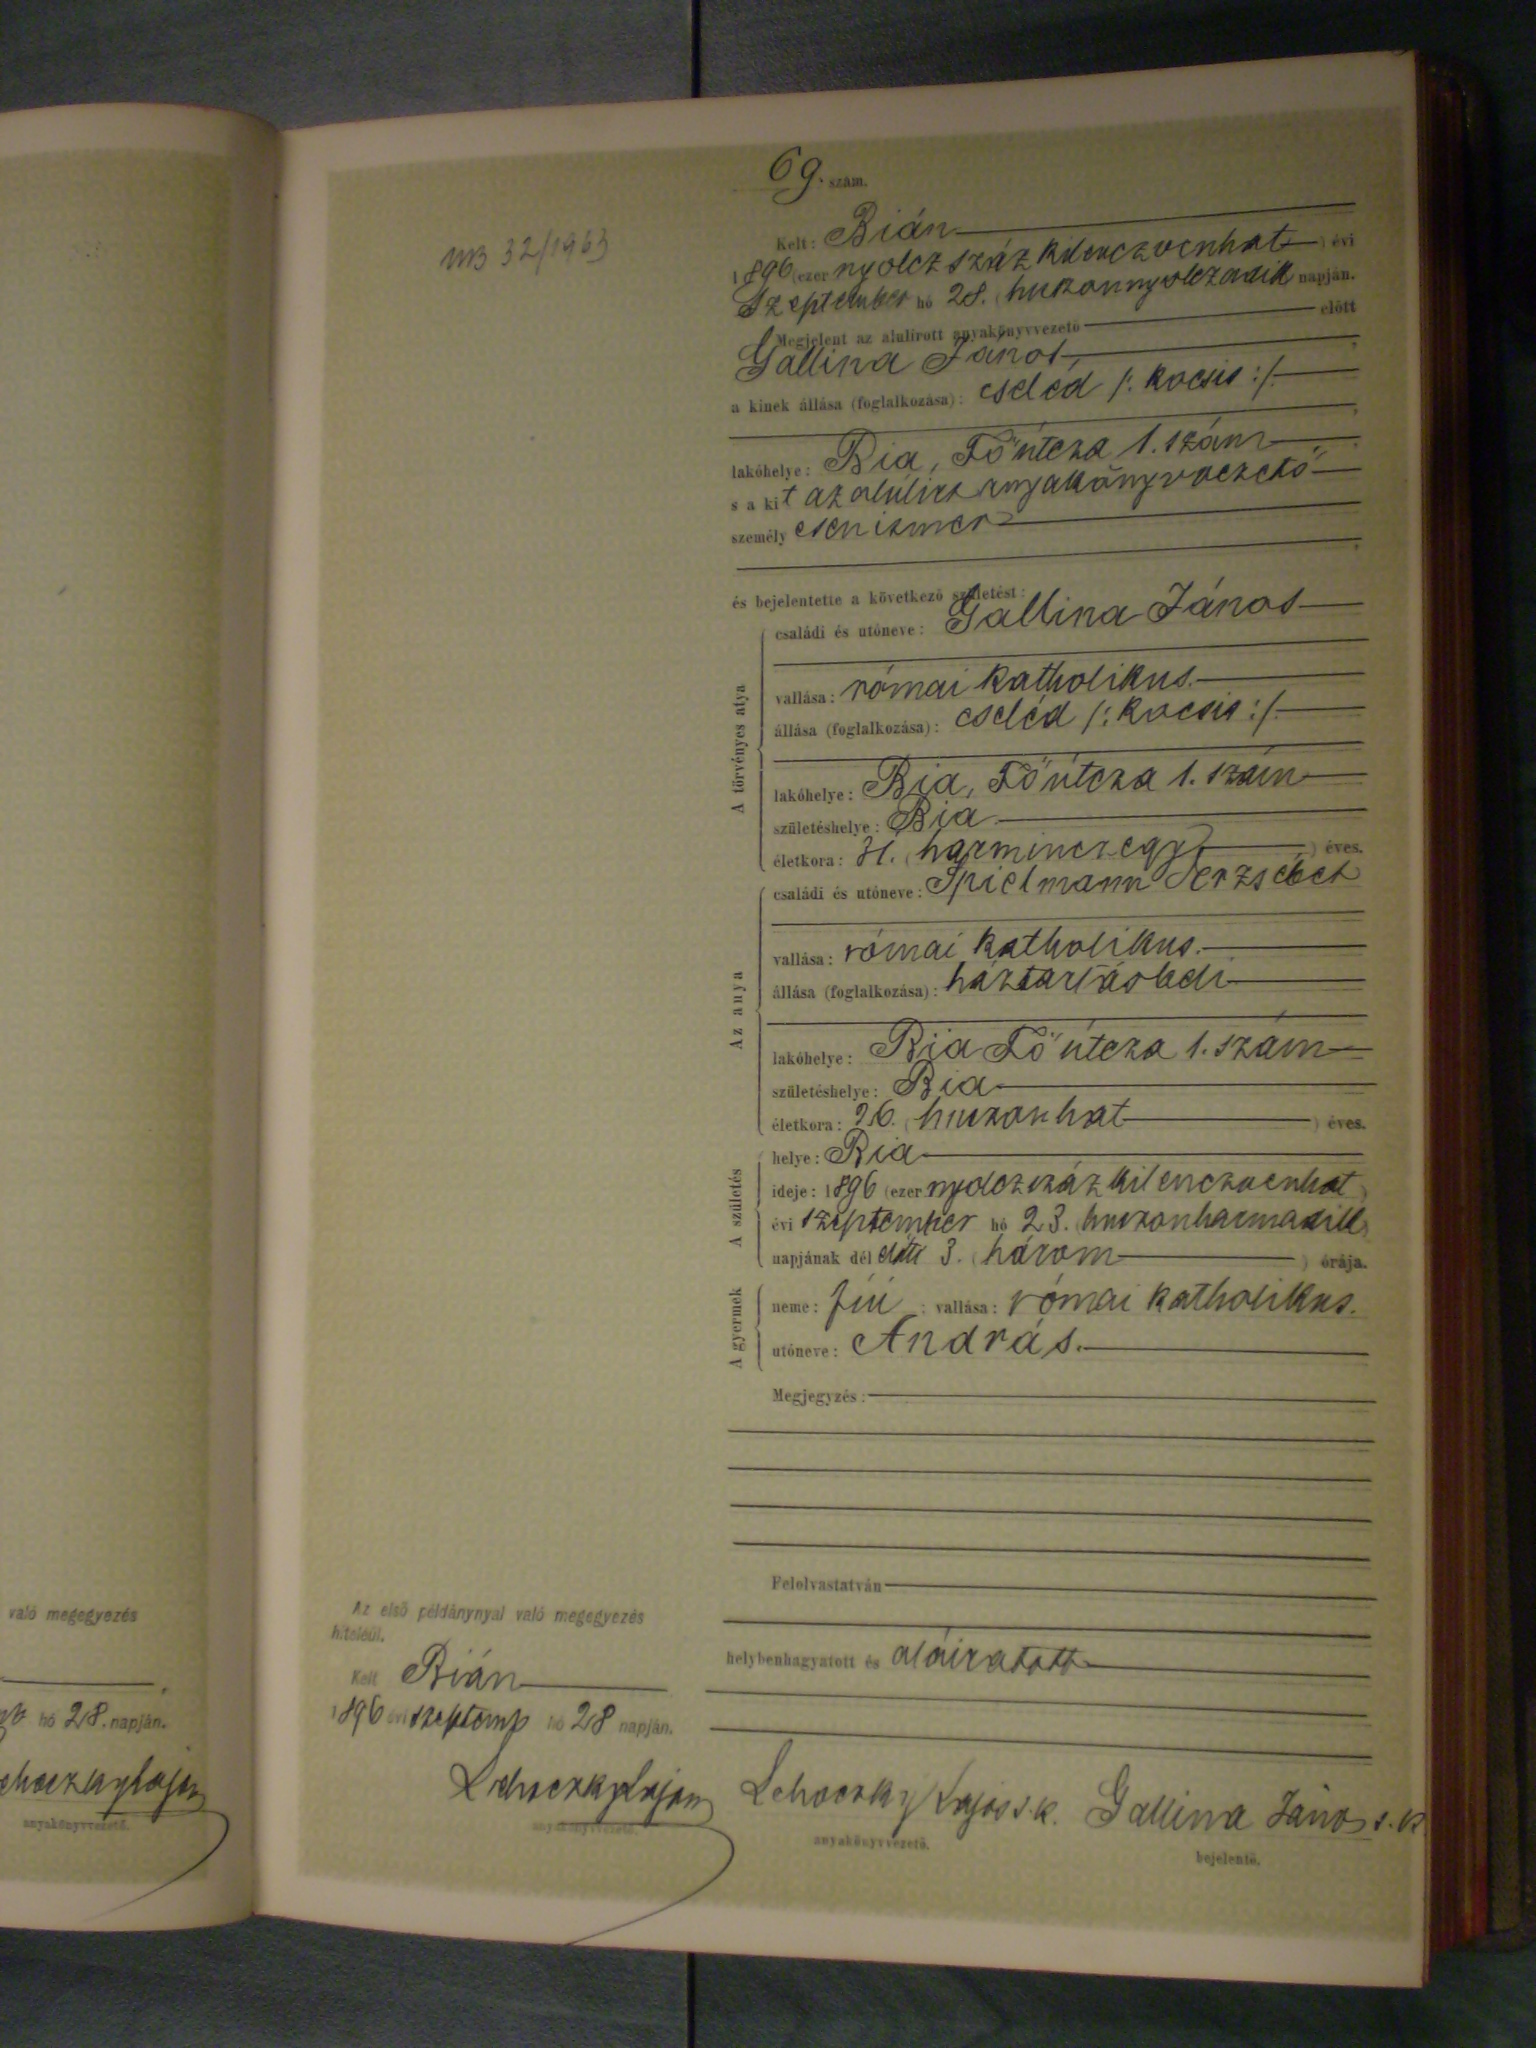 69. szám.
MB 32/1963
Kelt: Bián
1896 (ezer nyolczszázkilenczvenhat) évi
Szeptember hó 28. (huszonnyolczadik napján.
Megjelent az alulirott anyakönyvvezető előtt
Gallina János,
a kinek állása (foglalkozása): cseléd /: kocsis :/
lakóhelye: Bia, Főútcza 1. szám
s a kit az alúlirt anyakönyvvezető
személyesen ismer
és bejelentette a következő születést:
A törvényes atya
családi és utóneve: Gallina János
vallása: római katholikus.
állása (foglalkozása): cseléd /: kocsis :/
lakóhelye: Bia, Főútcza 1. szám
születéshelye: Bia
életkora: 31. (harminczegy) éves.
Az anya
családi és utóneve: Spielmann Erzsébet
vallása: római katholikus.
állása (foglalkozása): háztartásbeli
lakóhelye: Bia Főútcza 1. szám
születéshelye: Bia
életkora: 26. (huszonhat) éves.
A születés
helye: Bia
ideje: 1896 (ezer nyolczszázkilenczvenhat)
évi szeptember hó 23. (huszonharmadik)
napjának dél előtti 3. (három) órája.
A gyermek
neme: fiú ; vallása: római katholikus.
utóneve: András.
Megjegyzés:
Felolvastatván
helybenhagyatott és aláiratott
Az első példánynyal való megegyezés
hiteléül.
Kelt Bián
1896 évi szeptemb hó 28 napján.
Lehoczky Lajos
anyakönyvvezető.
Lehoczky Lajos s. k.
anyakönyvvezető.
Gallina János s. k.
bejelentő.
való megegyezés
hó 28. napján.
anyakönyvvezető.